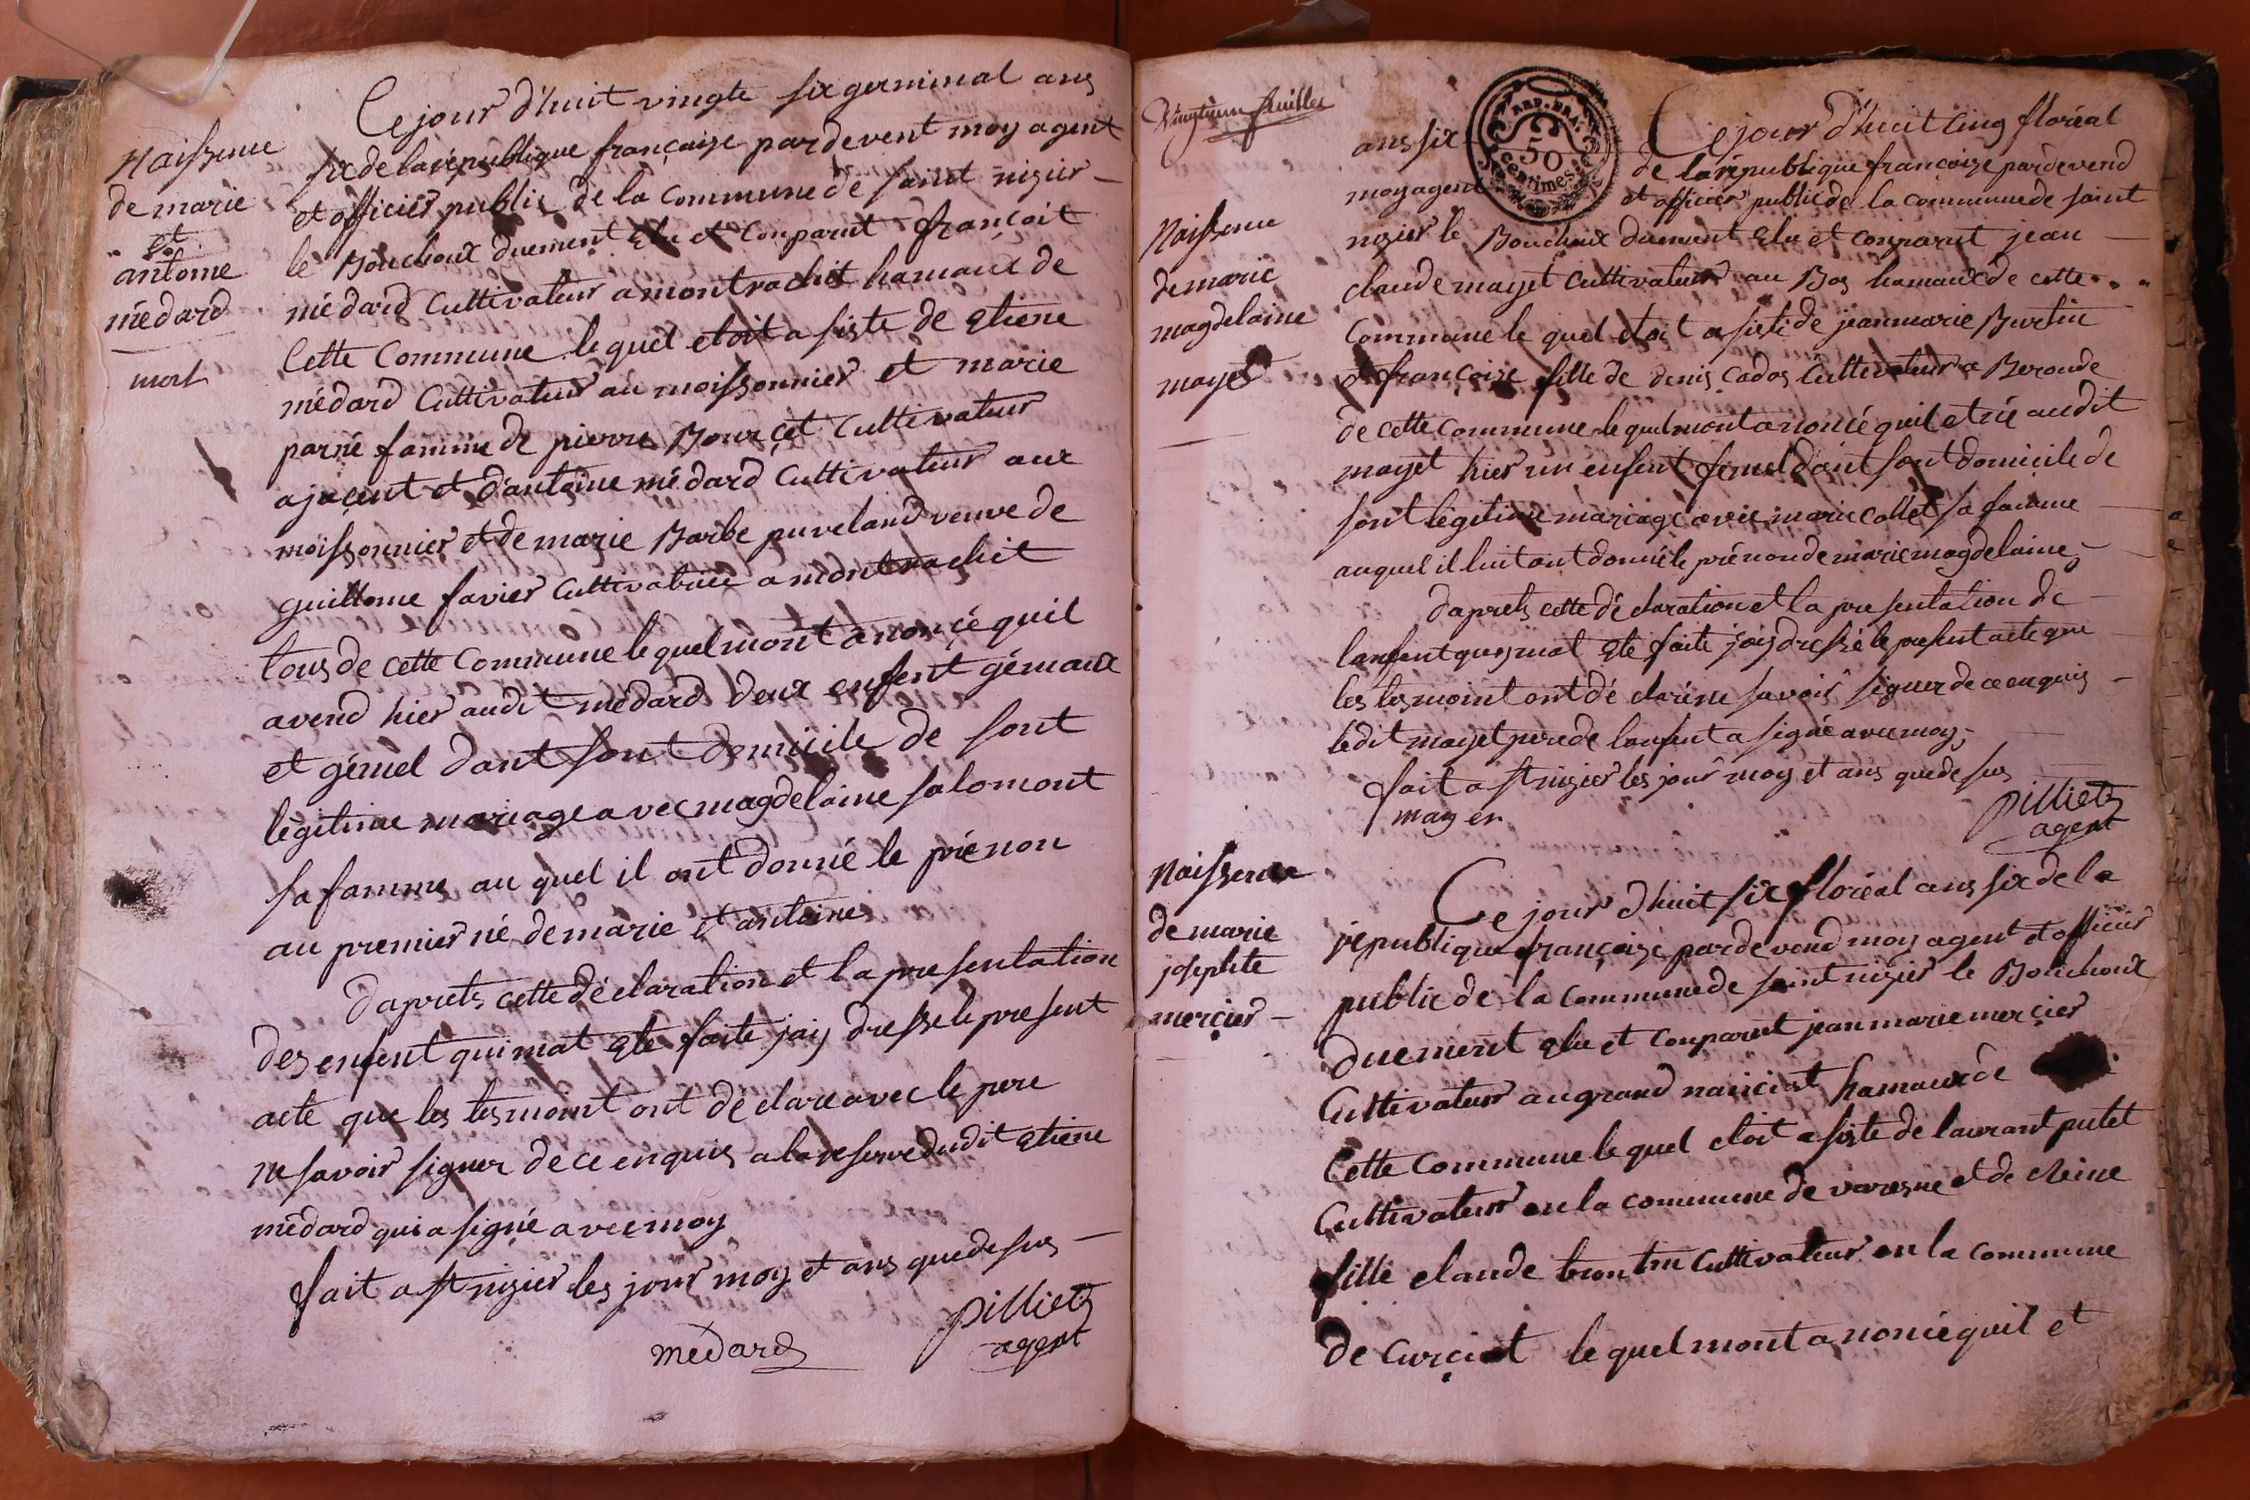 Naissence
de marie
et
antoine
médard
mort
Ce jour d'huit vingte six germinal ans
six de la république françaize pardevent moy agent
et officiér public de la commune de saint nizier
le Bouchoux duement Elu et Conparut françoit
médard Cultivateur a montrachit hamaux de
Cette Commune le quel etoit a siste de Etiene
médard Cultivateur au moissonnier et marie
parré famme de pierre Bourçet Cultivateur
ajaçent et d'antoine médard Cultivateur aux
moissonnier et de marie Barbe puveland veuve de
guillome favier Cultivatrice a montrachit
tous de cette Commune le quel mont anonçé quil
avend hier audit médard deux enfent gémaux
et gémel dant sont domicile de sont
légitime mariage avec magdelaine salomont
sa famme au quel il ont donné le prénon
au premier né de marie et antoine
daprets cette déclaration et la presentation
des enfent qui mat Ete faite jaiy dresse le present
acte que les tesmoint ont déclare avec le pere
ne savoir signer de ce enquis a la reserve dudit Etiene
médard qui a signé avec moy
fait a st nizier les jour moy et ans que desus
médard
Pilliet
agent
Vingtieme feuillet
Naissence
de marie
magdelaine
mayet
REP. FRA.
50
centimes
Ce jour d'huit cinq floréal
ans six de la république françoize pardevend
moy agent et officier public de la commune de saint
nizier le Bouchoux duement Elu et conparut jean
claude mayet cultivateur au Bos hamaux de cette
Commune le quel etoit a siste de jean marie Burtin
et françoize fille de denis Cados Cultivateur a Beroude
de cette commune le quel mont anoncé quil et né audit
mayet hier un enfent femel dant sont domicile de
sont légitime mariage avec marie collet sa famme
auquel il lui ont donné le prénon de marie magdelaine
daprets cette déclaration et la presentation de
lanfent quy mat Ete faite jaiy dressé le present acte que
les tesmoint ont déclaré ne savoir signer de ce enquis
ledit mayet pere de lanfent a signé avec moy
fait a st nizier les jour moy et ans que desus
mayer
Pilliet
agent
Naissence
de marie
josephte
merçier
Ce jour d'huit six floréal ans six de la
république françoize pardevend moy agent et officier
public de la commune de saint nizier le Bouchoux
duement Elu et Conparut jean marie merçier
Cultivateur au grand naiiciat hamaux de
Cette Commune le quel etoit a siste de laurant putet
Cultivateur en la commune de varesne et de Reine
fille claude trontin Cultivateur en la commune
de Curçiat le quel mont anoncé quil et